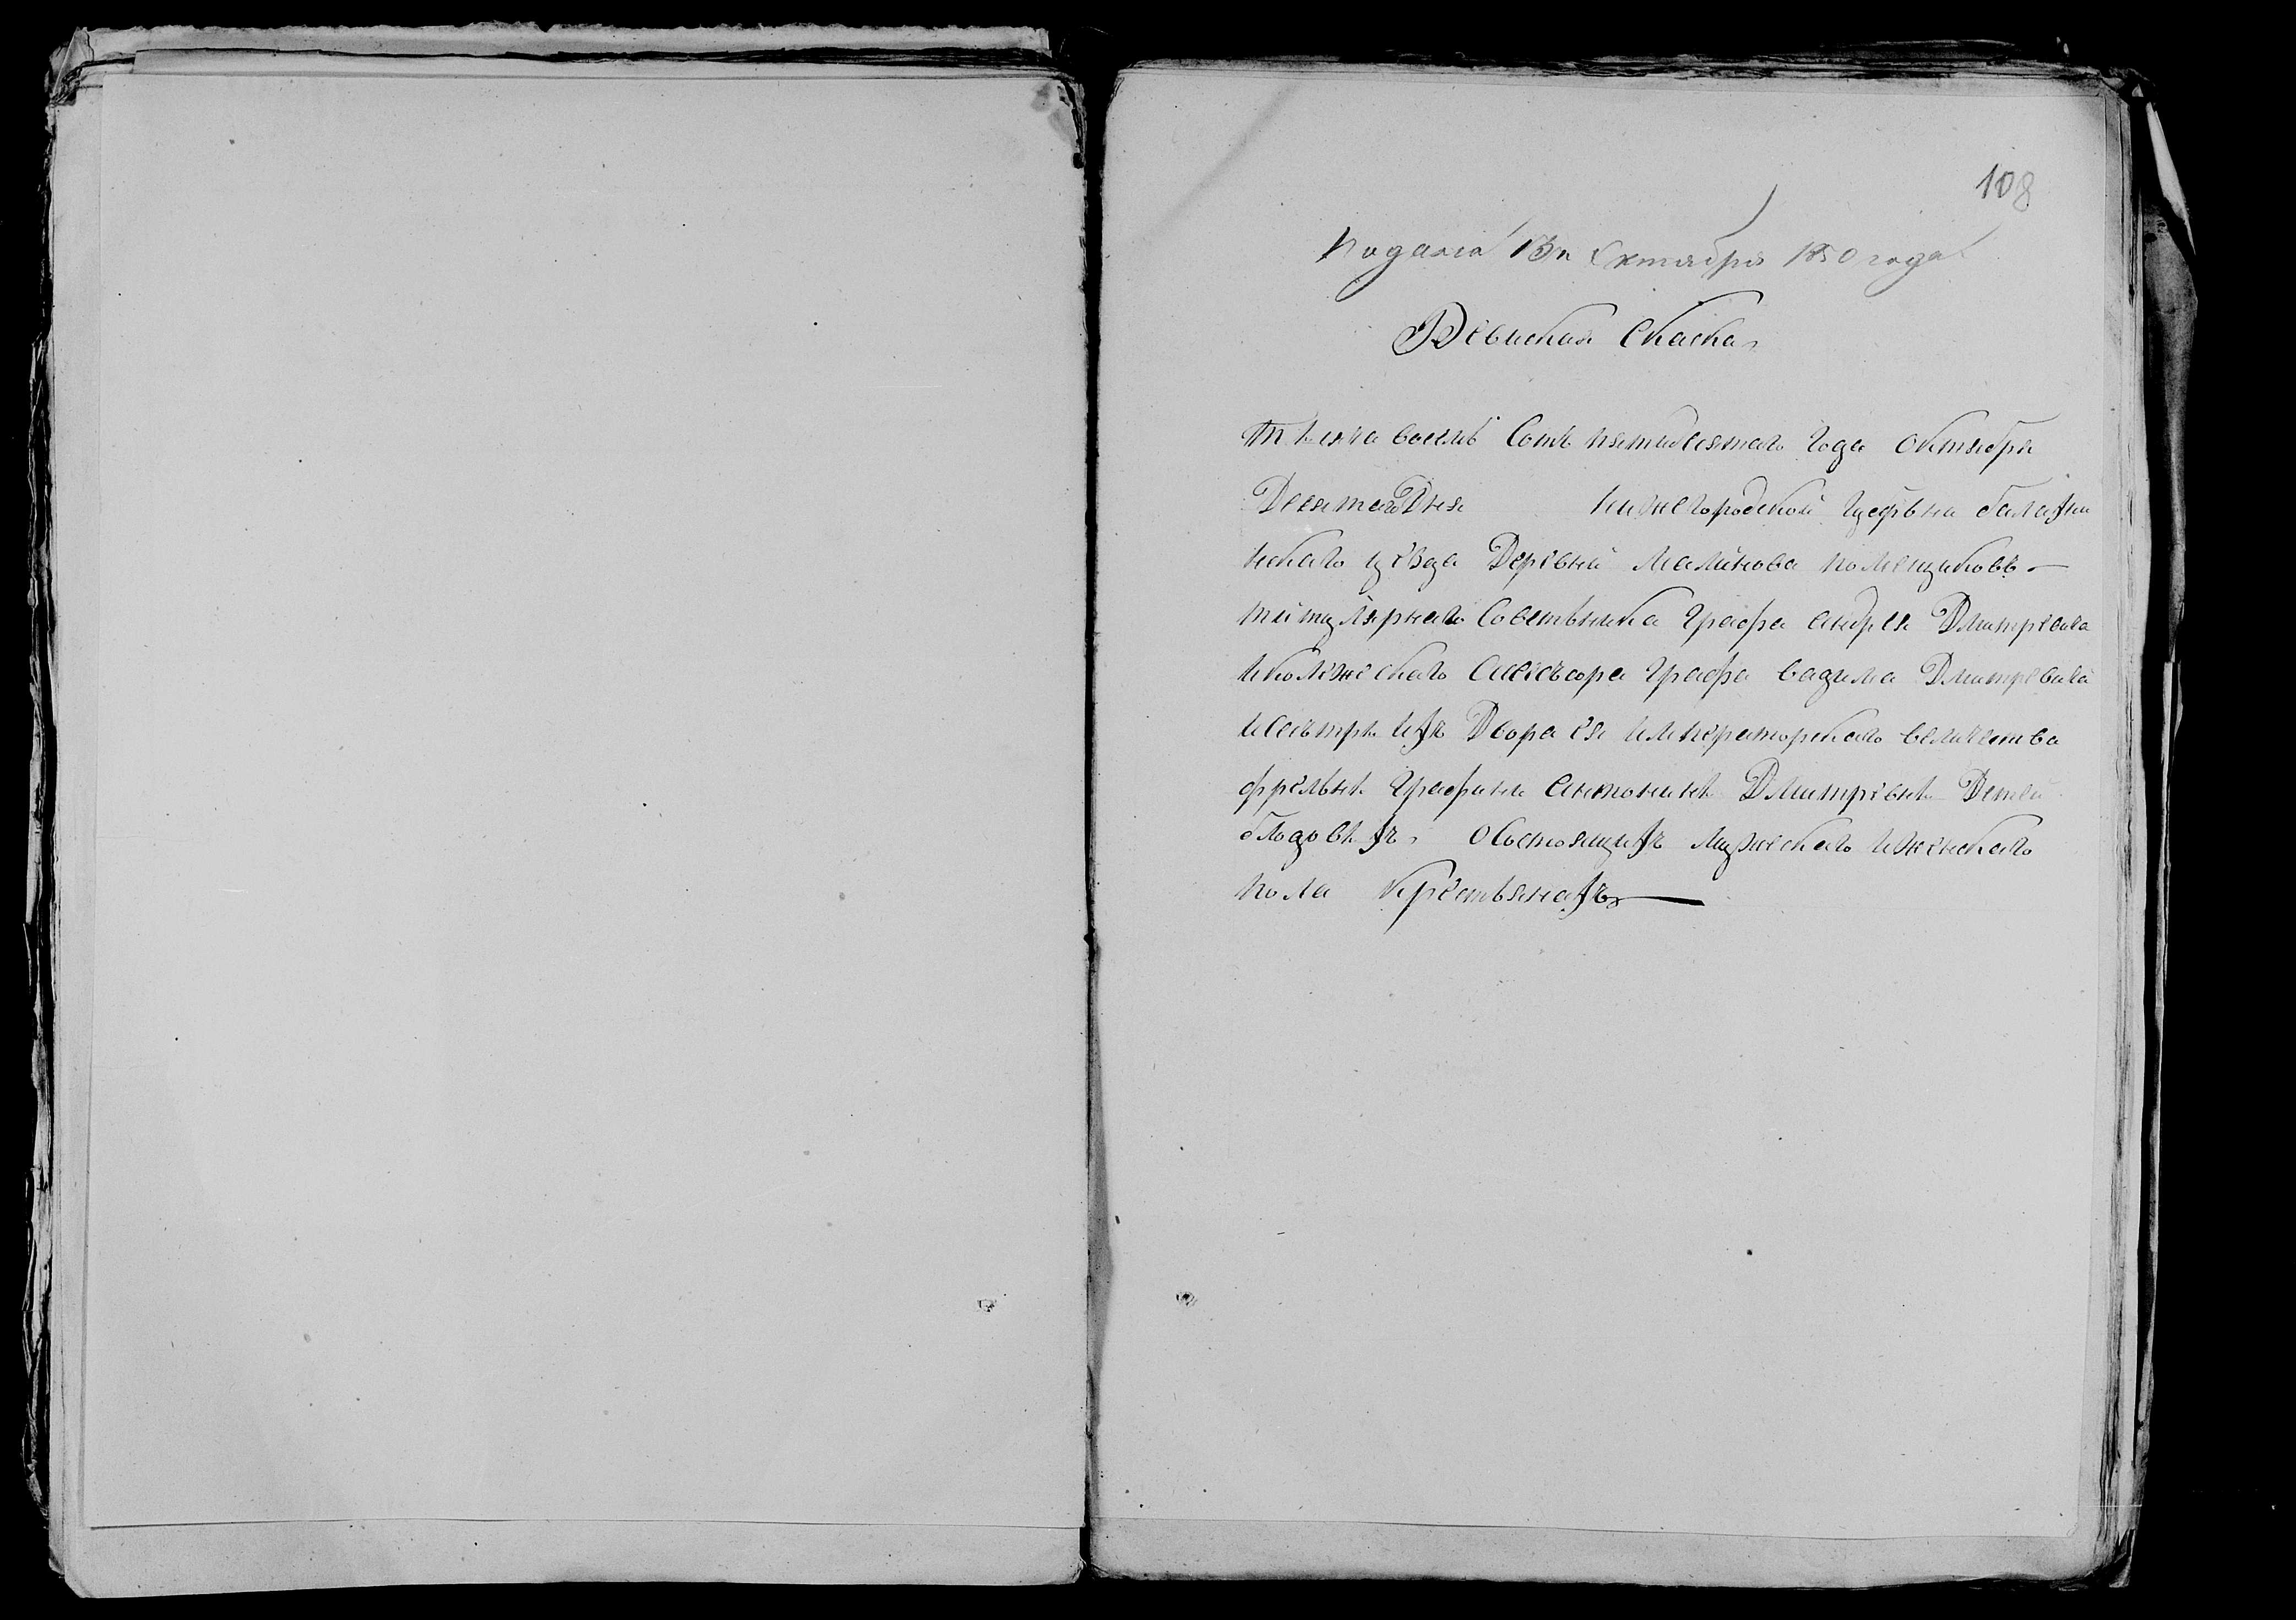 108
Подана 13го Октября 1850 года
Ревиская Скаска
тысяча восемь Сотъ пятидесятаго Года Октября
Десятаго Дня Нижегородской Губѣрни балахни
нскаго уезда Деревни Малинова помещиковъ —
титулярнаго Советьника Графа андрея Дмитревича
иколежскаго Асесьсора Графа вадима Дмитревича
исесътры ихъ Двора ея императорскаго величества
фрельны Графини Антонины Дмитревны Детей
блудовыхъ Осостоящихъ мужескаго иженскаго
пола крестьянахъ —